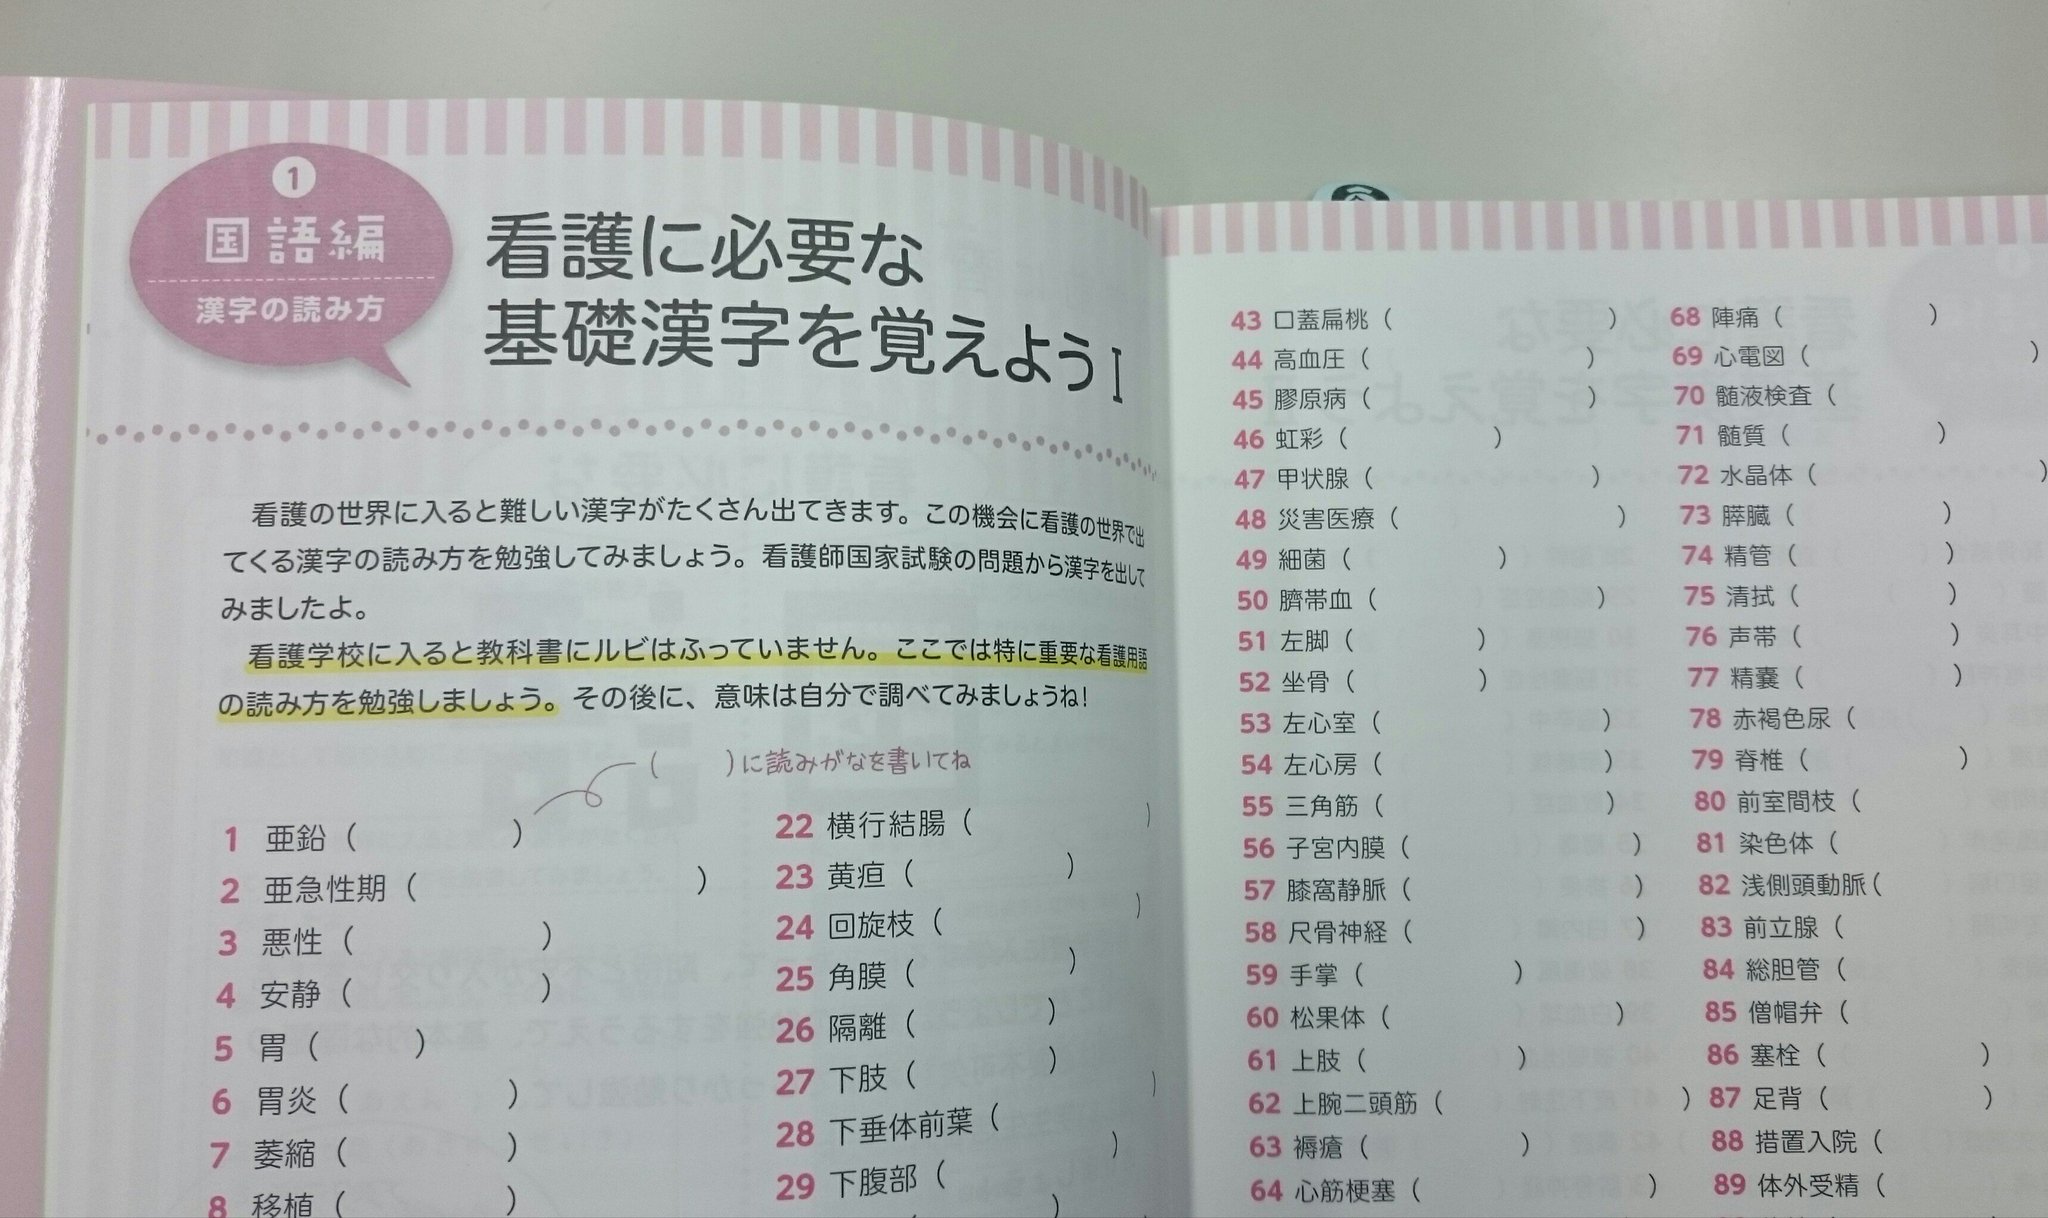 1
国語編
漢字の読み方
看護に必要な
基礎漢字を覚えようⅠ
看護の世界に入ると難しい漢字がたくさん出てきます。この機会に看護の世界で出
てくる漢字の読み方を勉強してみましょう。看護師国家試験の問題から漢字を出して
みましたよ。
看護学校に入ると教科書にルビはふっていません。ここでは特に重要な看護用語
の読み方を勉強しましょう。その後に、意味は自分で調べてみましょうね！
（　　）に読みがなを書いてね
1 亜鉛（　　）
2 亜急性期（　　）
3 悪性（　　）
4 安静（　　）
5 胃（　　）
6 胃炎（　　）
7 萎縮（　　）
8 移植（　　）
22 横行結腸（　　）
23 黄疸（　　）
24 回旋枝（　　）
25 角膜（　　）
26 隔離（　　）
27 下肢（　　）
28 下垂体前葉（　　）
29 下腹部（　　）
43 口蓋扁桃（　　）
44 高血圧（　　）
45 膠原病（　　）
46 虹彩（　　）
47 甲状腺（　　）
48 災害医療（　　）
49 細菌（　　）
50 臍帯血（　　）
51 左脚（　　）
52 坐骨（　　）
53 左心室（　　）
54 左心房（　　）
55 三角筋（　　）
56 子宮内膜（　　）
57 膝窩静脈（　　）
58 尺骨神経（　　）
59 手掌（　　）
60 松果体（　　）
61 上肢（　　）
62 上腕二頭筋（　　）
63 褥瘡（　　）
64 心筋梗塞（　　）
68 陣痛（　　）
69 心電図（　　）
70 髄液検査（
71 髄質（　　）
72 水晶体（　　）
73 膵臓（　　）
74 精管（　　）
75 清拭（　　）
76 声帯（　　）
77 精嚢（　　）
78 赤褐色尿（
79 脊椎（　　）
80 前室間枝（
81 染色体（
82 浅側頭動脈（
83 前立腺（
84 総胆管（
85 僧帽弁（
86 塞栓（　　）
87 足背（　　）
88 措置入院（
89 体外受精（